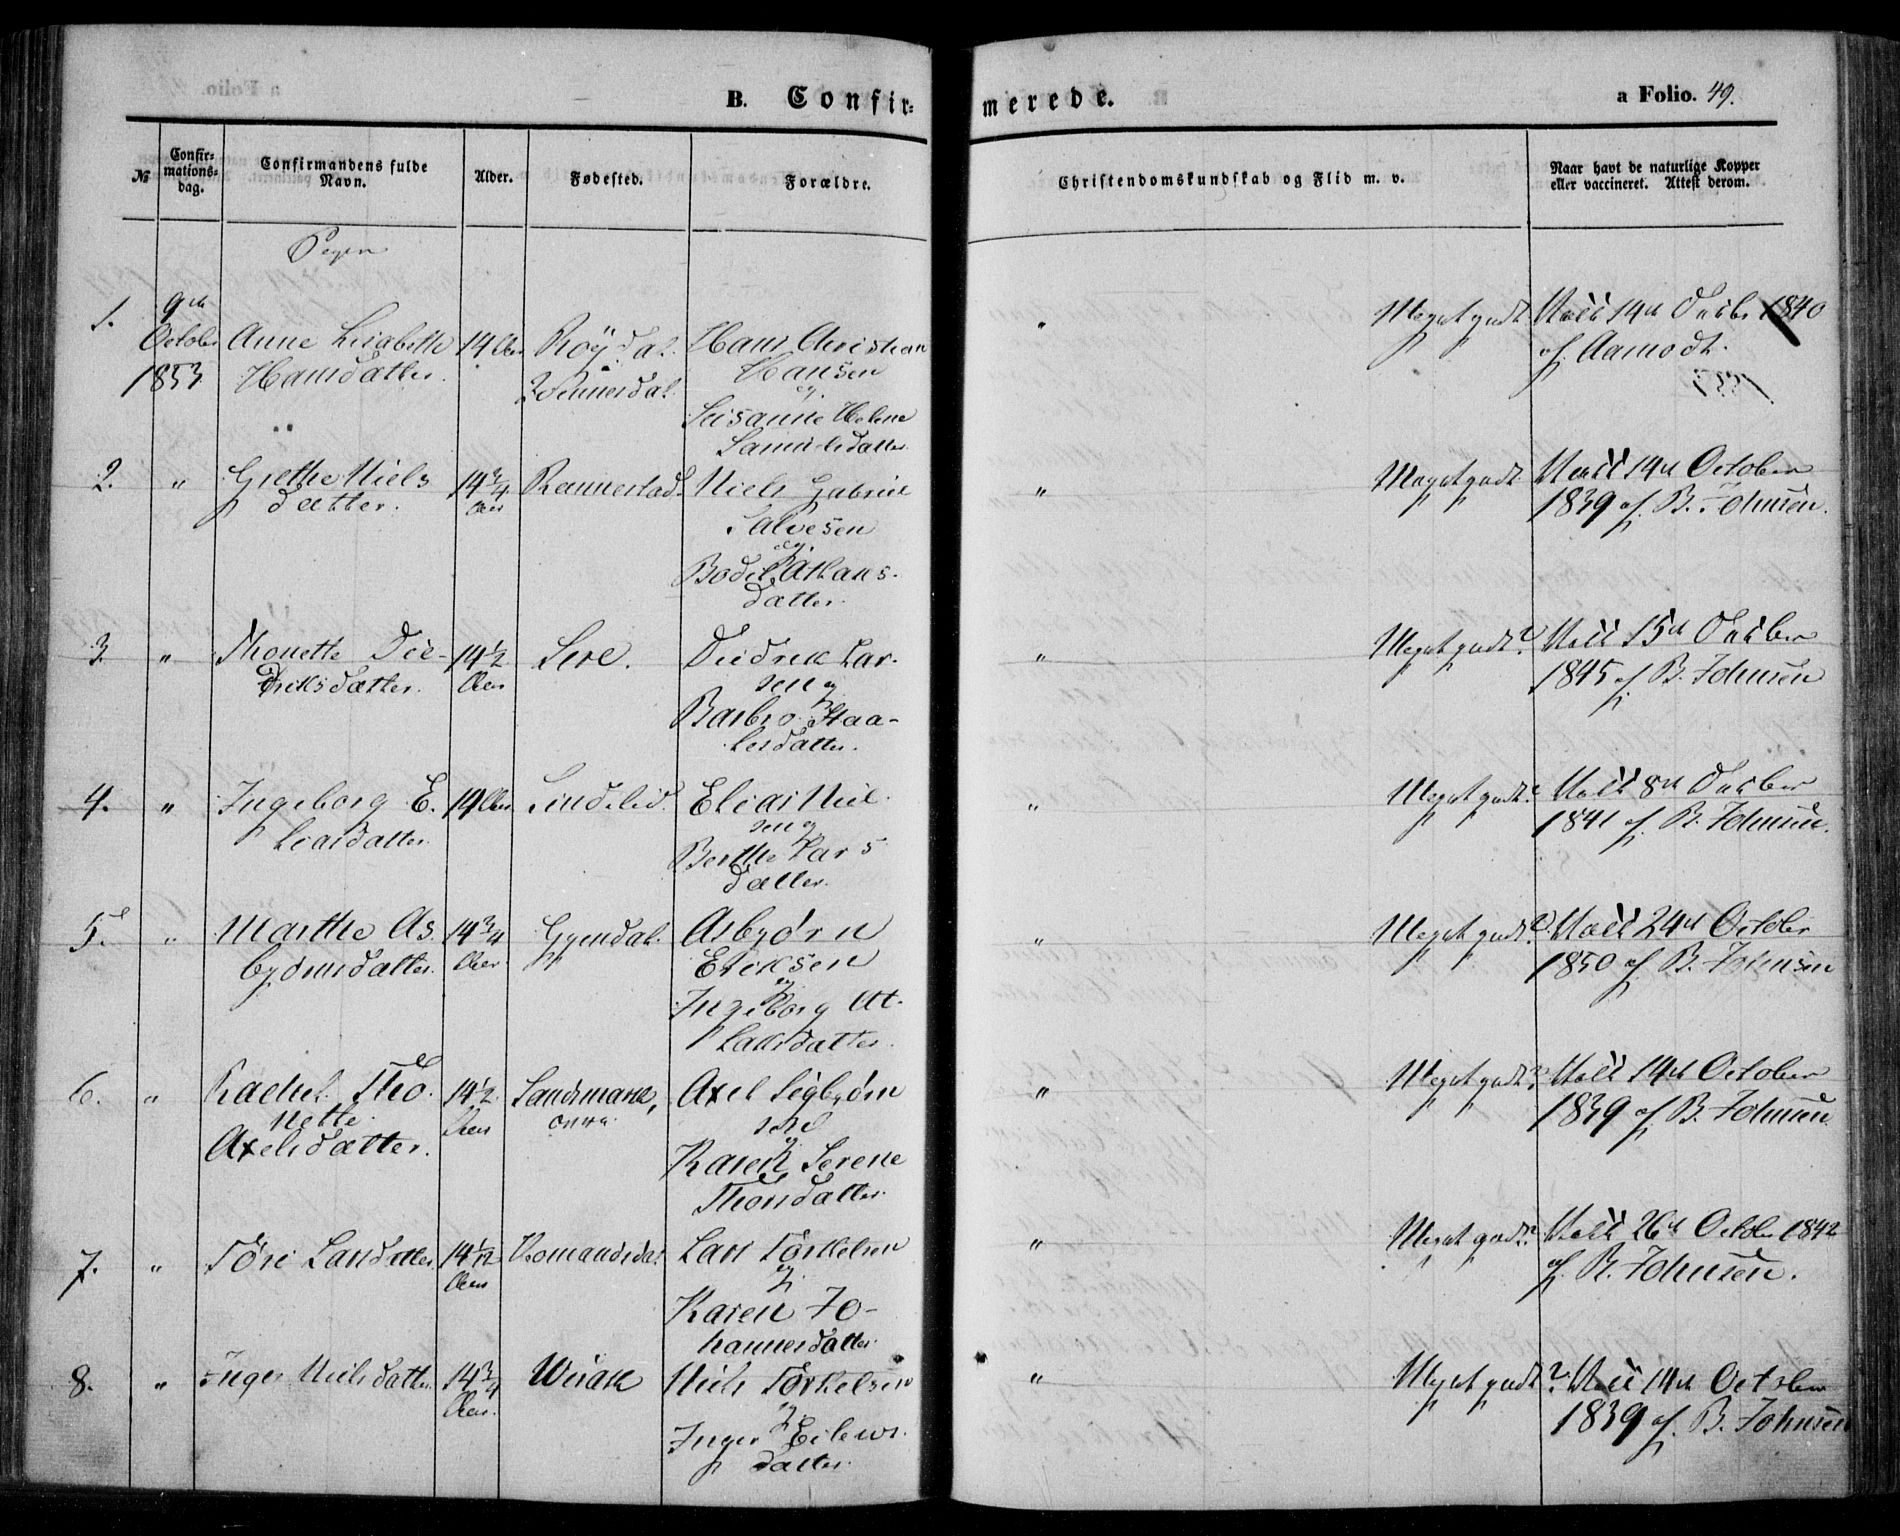 B. Confirmerede.
a Folio. 49.
№
Confirmationsdag.
Confirmandens fulde Navn.
Alder.
Fødested.
Forældre.
Christendomskundskab og Flid m. v.
Naar havt de naturlige Kopper eller vaccineret. Attest derom.
Piger
1.
9de October 1853
Anne Lisabeth
Hansdatter
14 Aar
Røÿdal
Hans Christian
Hansen
og
Susanne Helene
Samuelsdatter
"
Meget godt
14d 1840
af Aamodt.
2.
"
Grethe Niels
datter.
14 3/4
Aar
Rannestad
Niels Gabriel
Salvesen
og
Bodil
datter
"
Meget godt
14d October
1839 af B. Johnsen.
3.
"
Thonette Die-
driksdatter.
14 1/2
Aar
Diedrik Lar-
sen og
Barbro Staa-
lesdatter.
"
Meget godt
15d
1845 af B. Johnsen
4.
"
Ingeborg E.
liasdatter
19 Aar
Lindelid.
Elias Niel
sen og
Berthe Lars
datter.
"
Meget godt
8d
1841 af B. Johnsen.
5.
"
Marthe As
bjørnsdatter.
14 3/4
Aar
Asbjørn
Eriksen
og
Ingeborg At-
laksdatter.
"
Meget godt
24d October
1850 af B. Johnsen
6.
"
Rachel Tho
nette
Axelsdatter.
14 1/2
Aar
Axel Sigbjørn
sen
og
Karen Serene
Thorsdatter
"
Meget godt
14d October
1839 af B. Johnsen
7.
"
Larsdatter
14 1/2
Aar
Lars Torkelsen
og
Karen Jo-
hannesdatter
"
Meget godt
26d October 1842
af B. Johnsen.
8.
"
Inger Nielsdatter
14 3/4
Aar.
Wisak
Niels Torkelsen
og
Inger
datter.
"
Meget godt
14d October
1839 af B. Johnsen